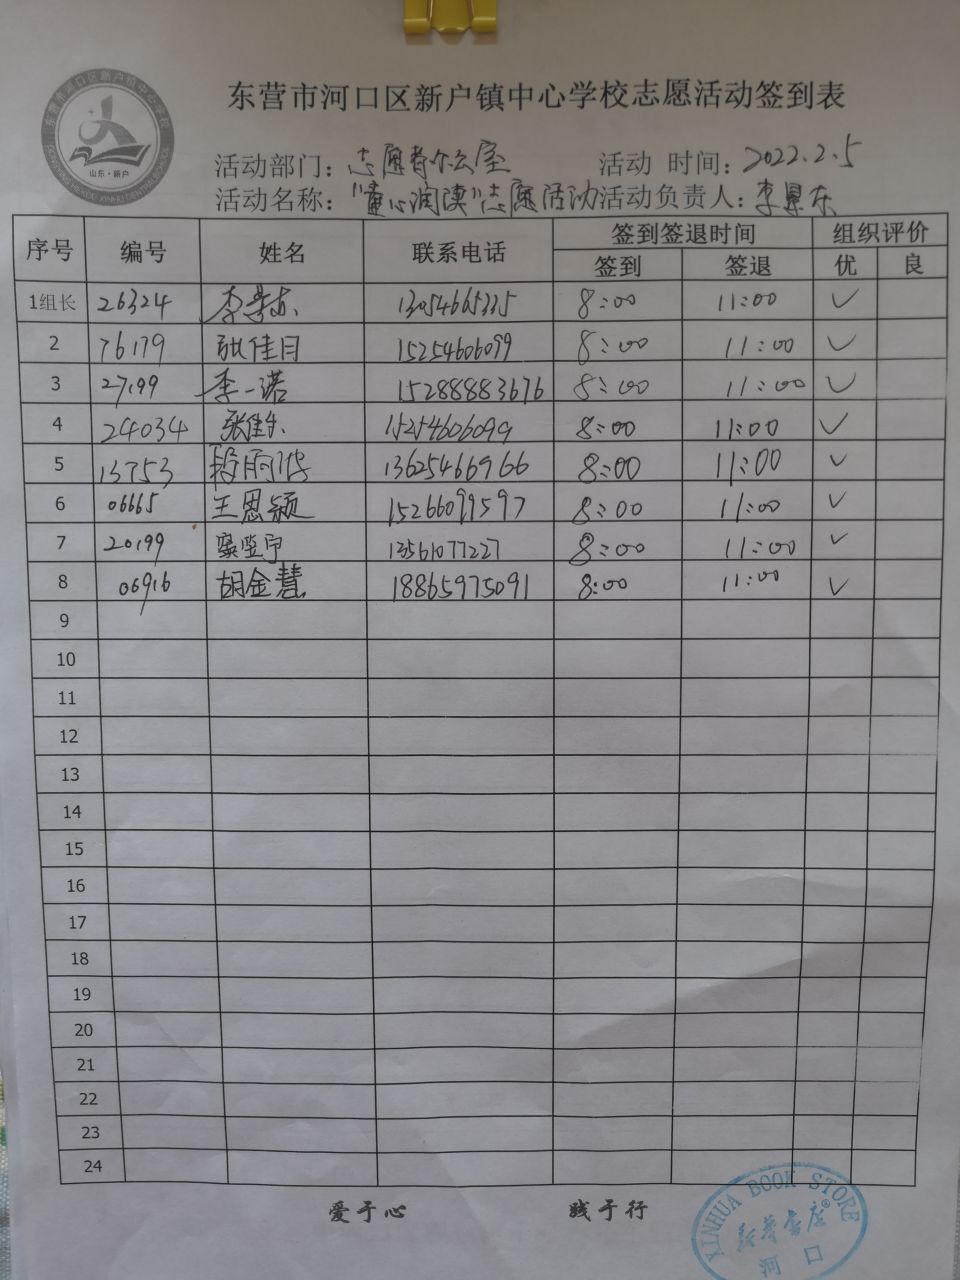 东营市河口区新户镇中心学校志愿活动签到表
山东·新户
活动部门：志愿者办公室 活动 时间：2022.2.5
活动名称："童心润读"志愿活动 活动负责人：李景东
序号 编号 姓名 联系电话 签到签退时间 组织评价
签到 签退 优 良
1组长 26324 李景东 13054665335 8:00 11:00 ✓
2 76179 张佳月 15254606099 8:00 11:00 ✓
3 27199 李一诺 15288883676 8:00 11:00 ✓
4 24034 张佳乐 15254606099 8:00 11:00 ✓
5 13753 段雨 13625466966 8:00 11:00 ✓
6 06665 王恩颖 15266099597 8:00 11:00 ✓
7 20199 13561077227 8:00 11:00 ✓
8 06916 胡金慧 18865975091 8:00 11:00 ✓
9
10
11
12
13
14
15
16
17
18
19
20
21
22
23
24
爱于心 践于行
XINHUA BOOK STORE
新华书店®
河口